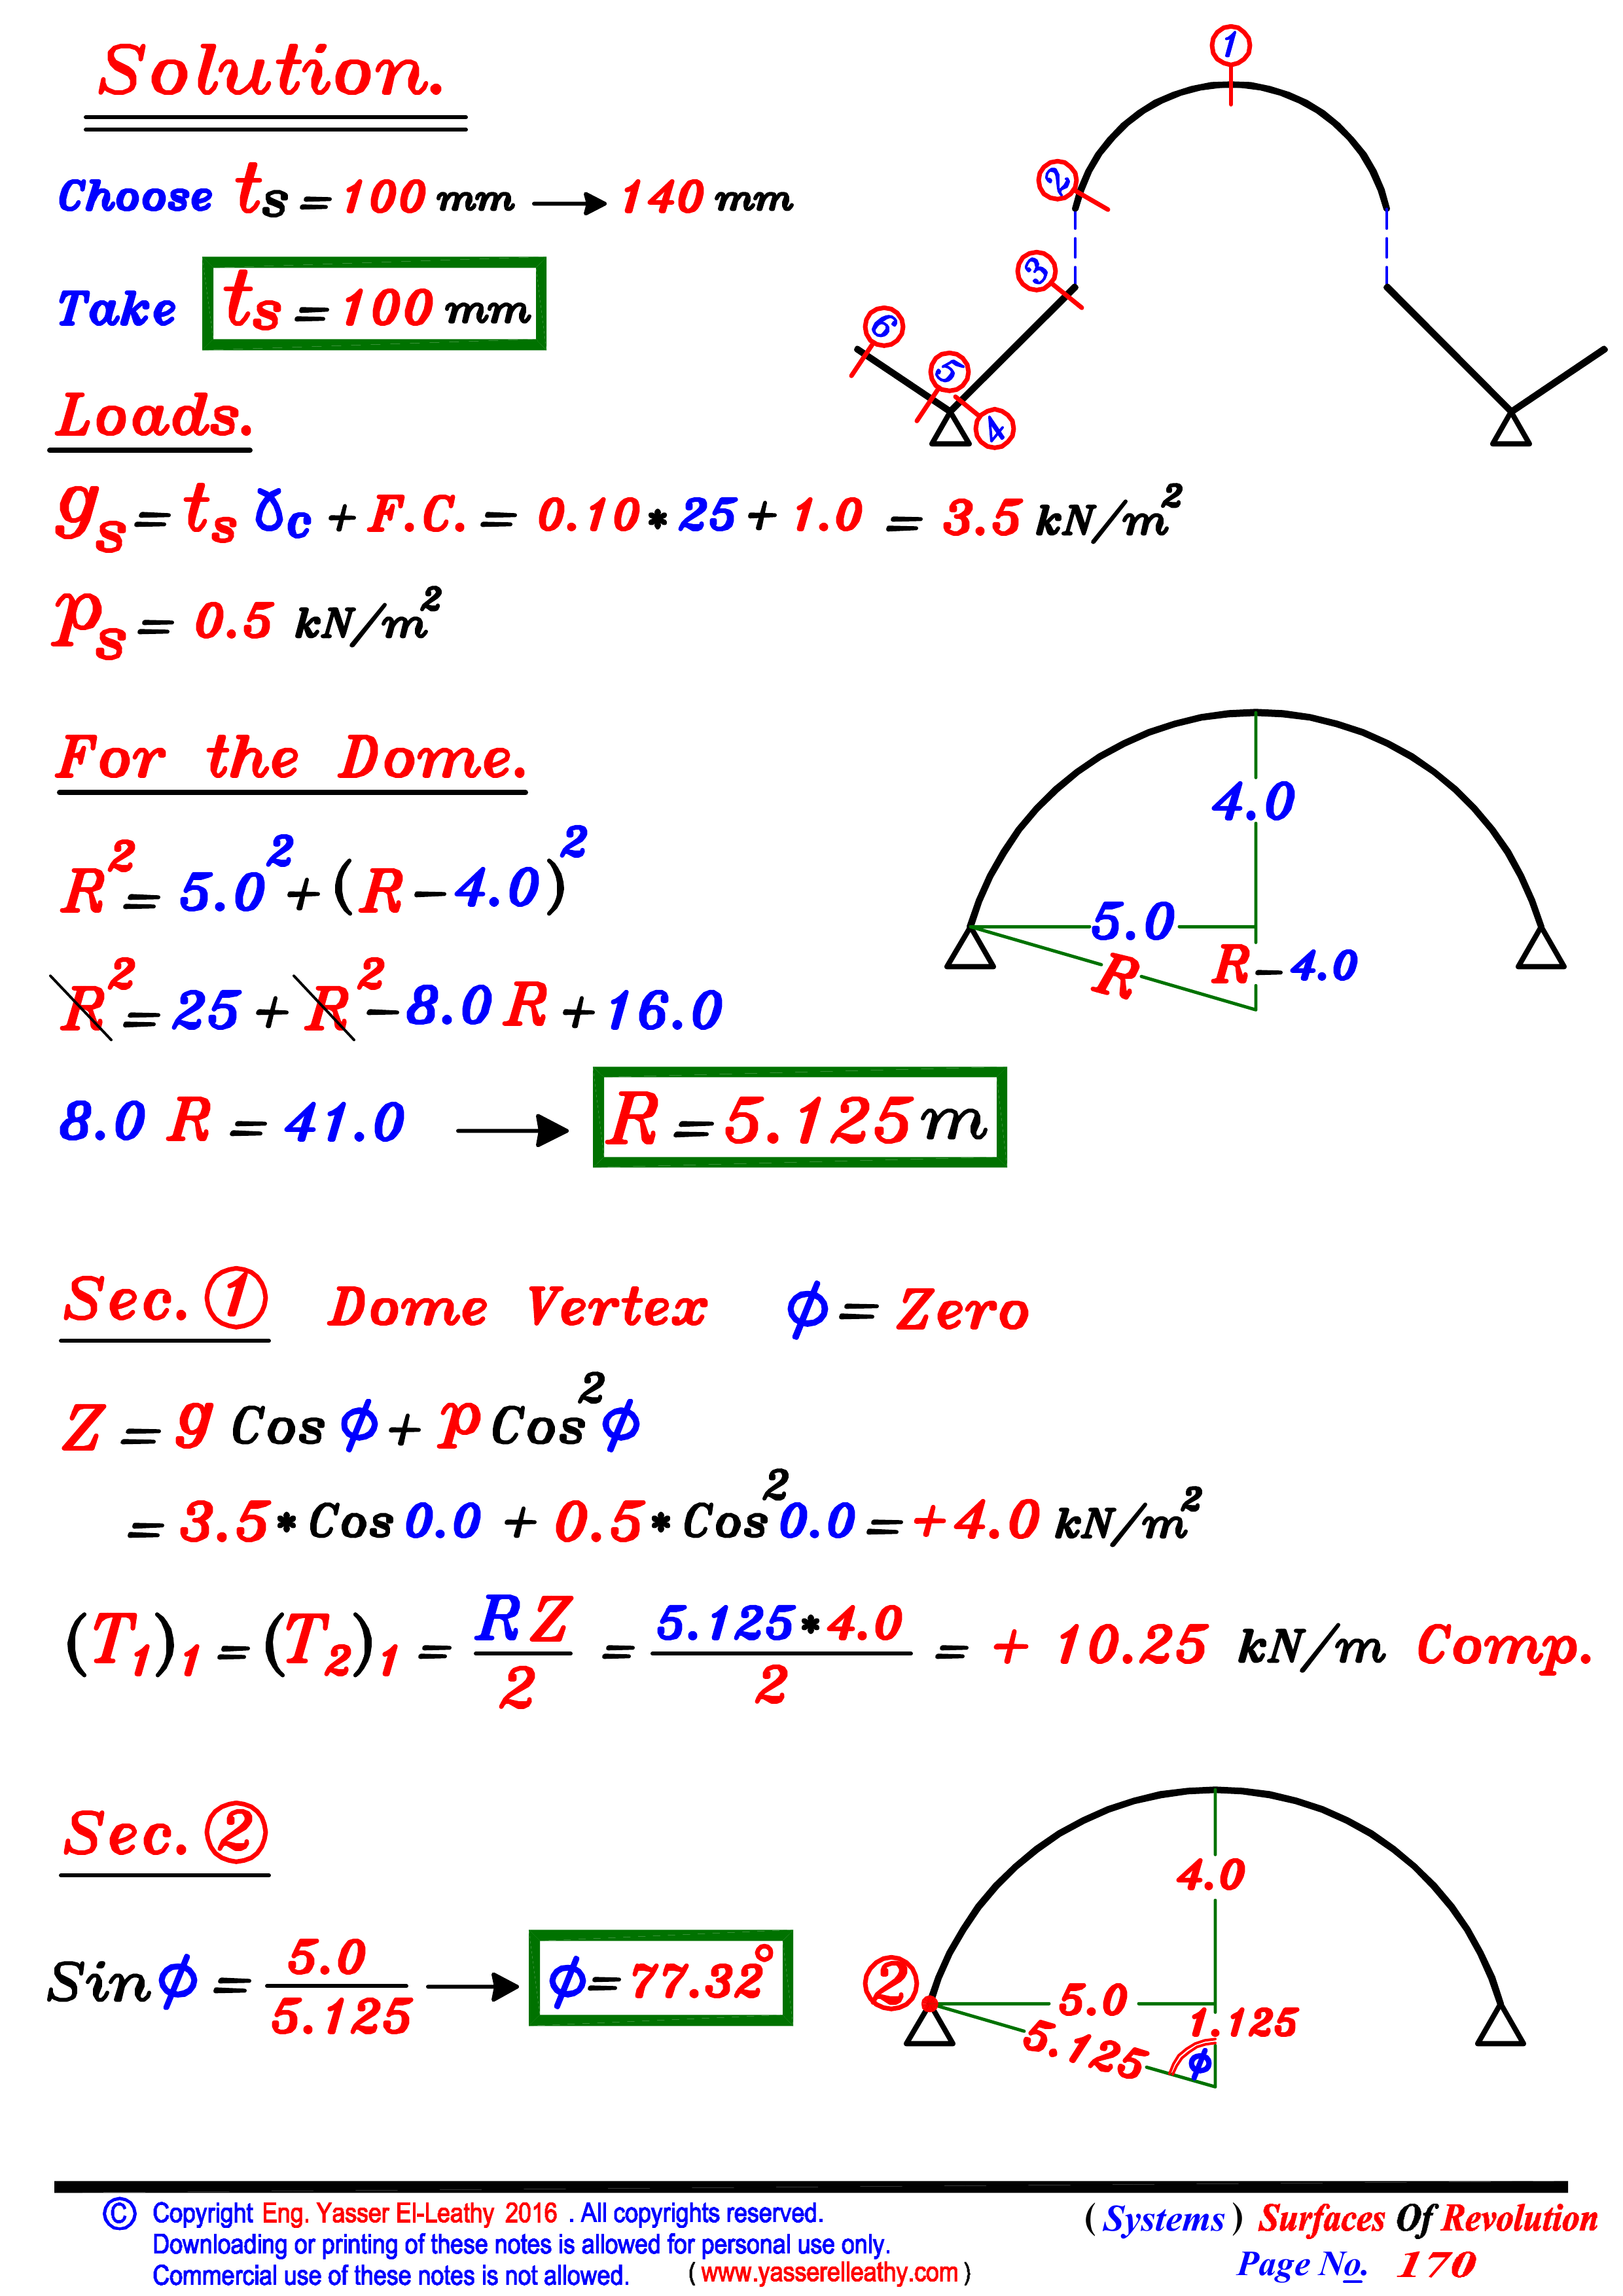 Solution.
1
Choose ts = 100 mm → 140 mm
2
3
Take ts = 100 mm
6
5
4
Loads.
gs = ts γc + F.C. = 0.10 * 25 + 1.0 = 3.5 kN/m²
ps = 0.5 kN/m²
For the Dome.
4.0
R² = 5.0² + (R - 4.0)²
5.0
R
R - 4.0
R² = 25 + R² - 8.0 R + 16.0
8.0 R = 41.0 → R = 5.125 m
Sec. ① Dome Vertex ϕ = Zero
Z = g Cos ϕ + p Cos² ϕ
= 3.5 * Cos 0.0 + 0.5 * Cos² 0.0 = +4.0 kN/m²
(T₁)₁ = (T₂)₁ = R Z / 2 = 5.125 * 4.0 / 2 = + 10.25 kN/m Comp.
Sec. ②
4.0
Sin ϕ = 5.0 / 5.125 → ϕ = 77.32°
2
5.0
1.125
5.125
ϕ
© Copyright Eng. Yasser El-Leathy 2016 . All copyrights reserved.
Downloading or printing of these notes is allowed for personal use only.
Commercial use of these notes is not allowed. ( www.yasserelleathy.com )
( Systems ) Surfaces Of Revolution
Page No. 170